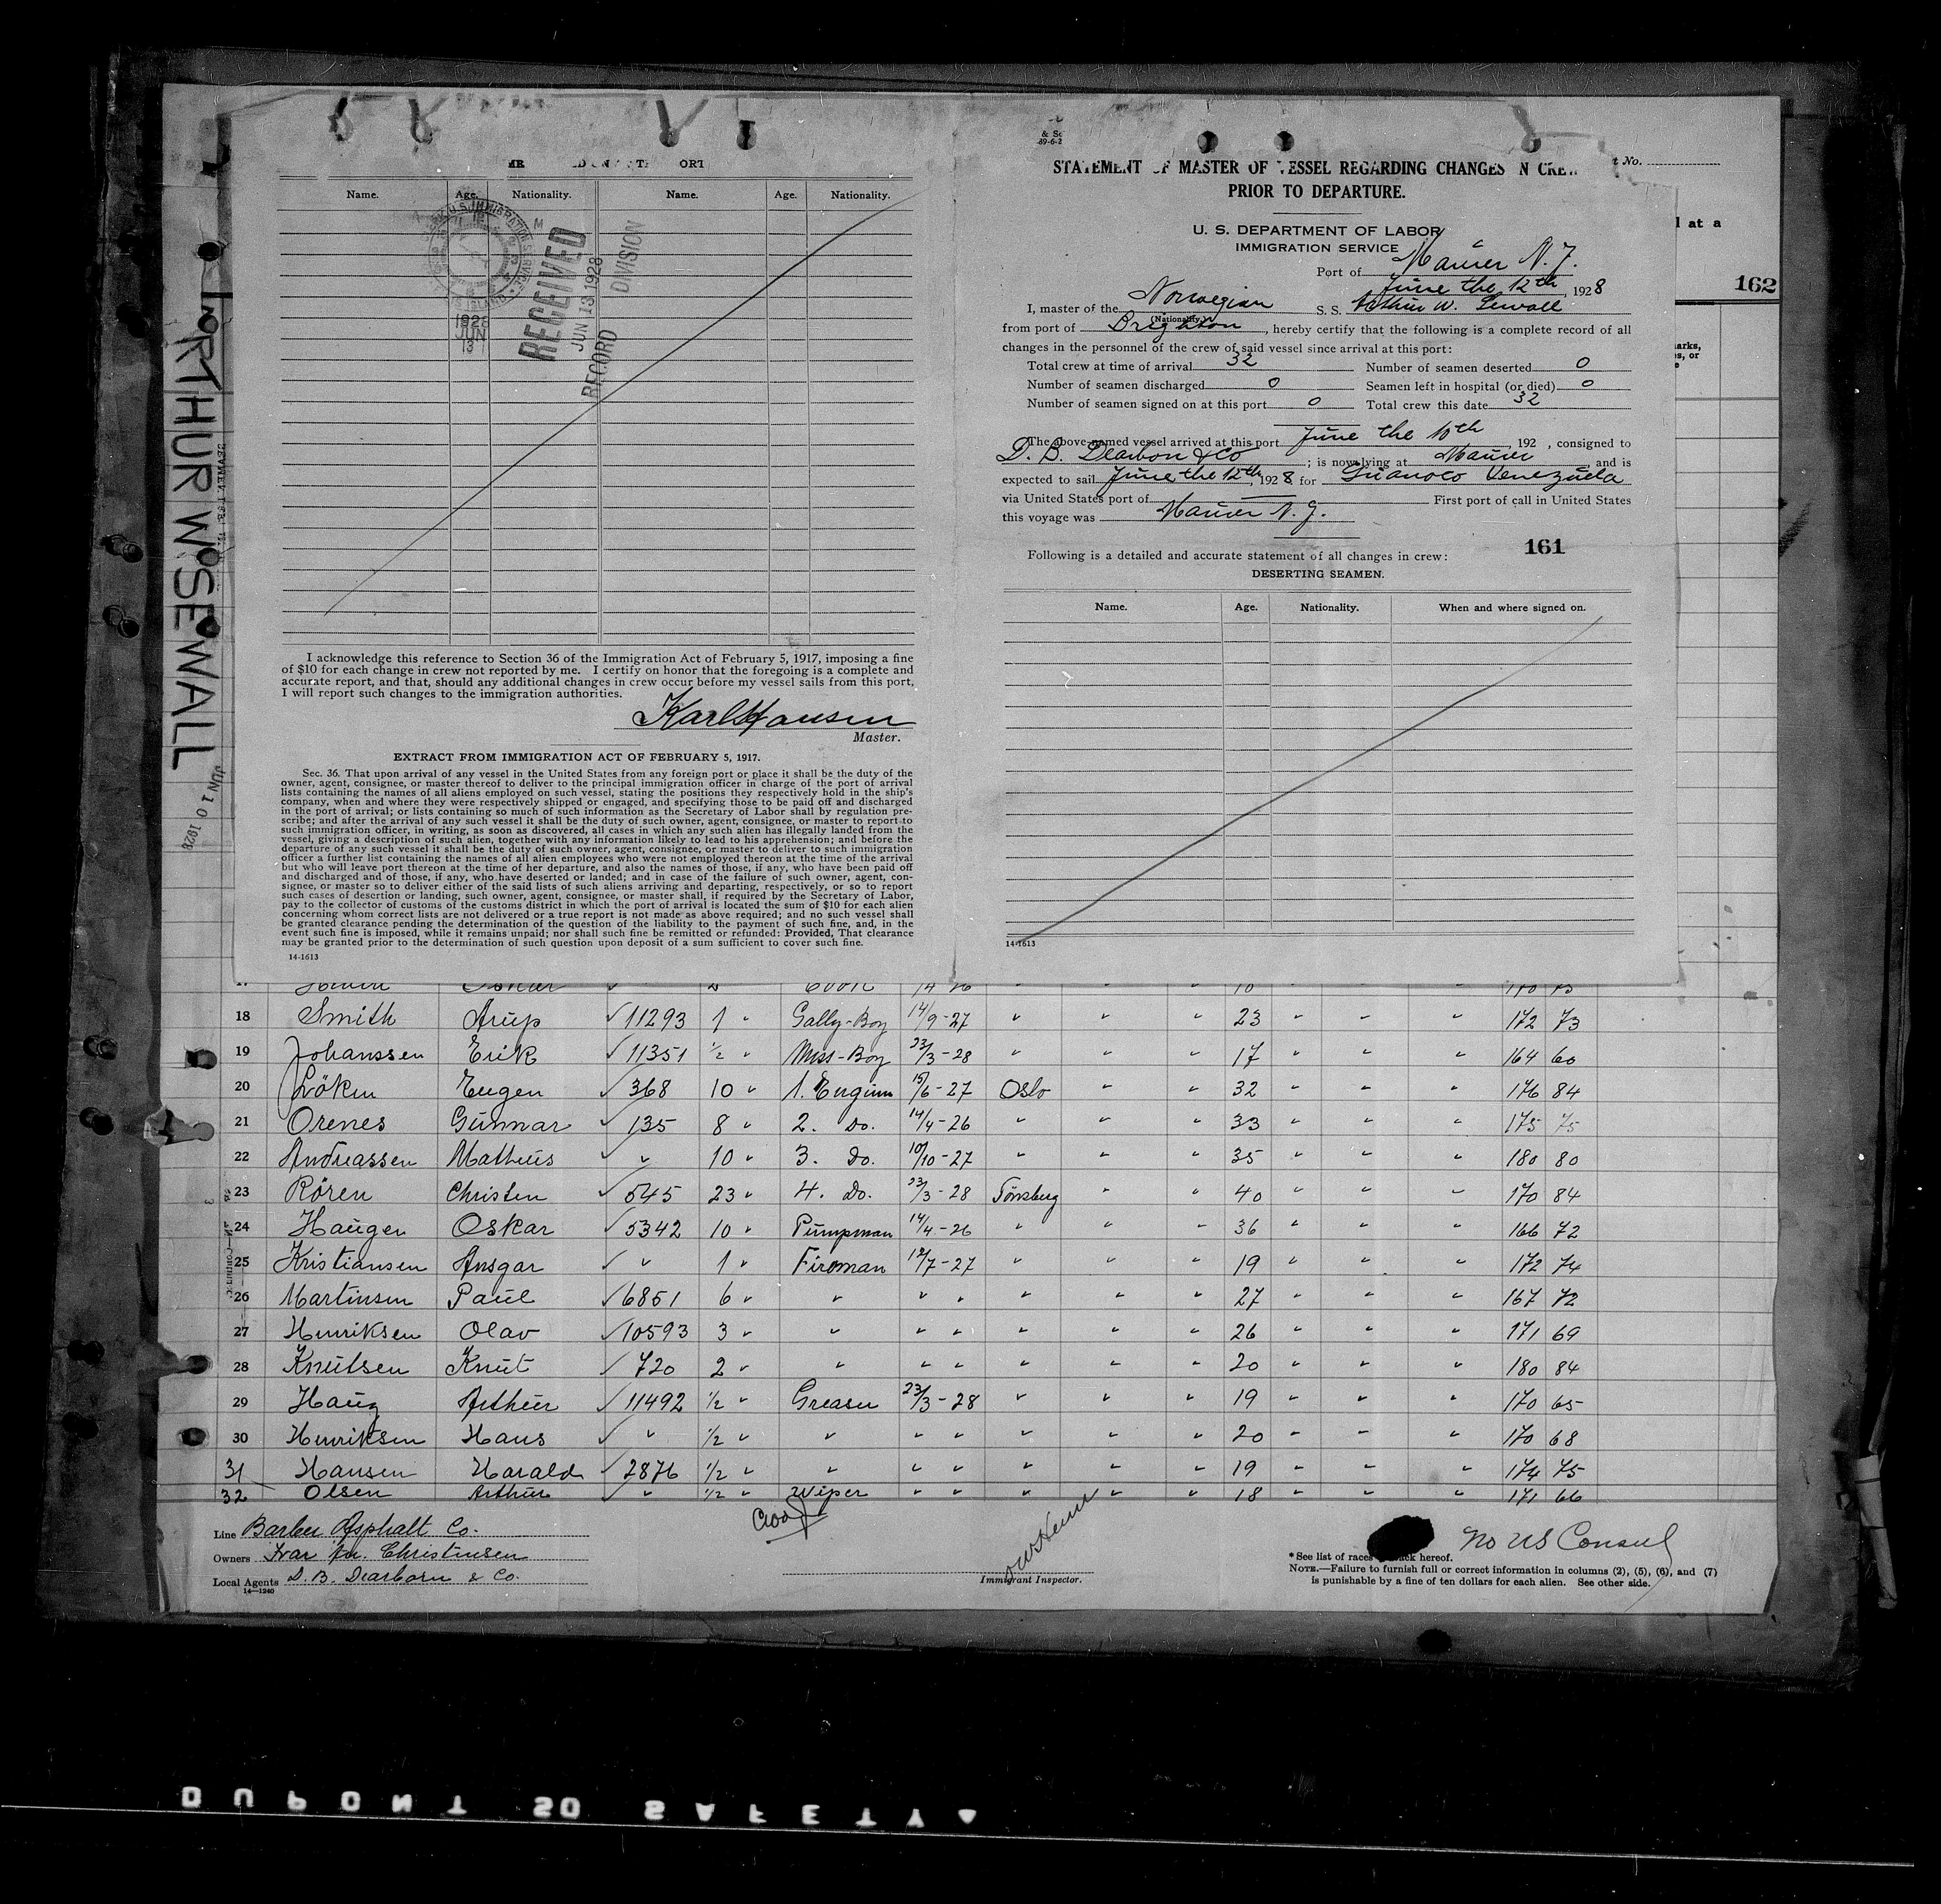 ARTHUR W SEWALL
JUN 10 1928
Name. Age. Nationality. Name. Age. Nationality.
U.S. IMMIGRATION SERVICE
1928
JUN
13
RECEIVED
JUN 13 1928
RECORD DIVISION
I acknowledge this reference to Section 36 of the Immigration Act of February 5, 1917, imposing a fine
of $10 for each change in crew not reported by me. I certify on honor that the foregoing is a complete and
accurate report, and that, should any additional changes in crew occur before my vessel sails from this port,
I will report such changes to the immigration authorities.
Karl Hansen
Master.
EXTRACT FROM IMMIGRATION ACT OF FEBRUARY 5, 1917.
Sec. 36. That upon arrival of any vessel in the United States from any foreign port or place it shall be the duty of the
owner, agent, consignee, or master thereof to deliver to the principal immigration officer in charge of the port of arrival
lists containing the names of all aliens employed on such vessel, stating the positions they respectively hold in the ship's
company, when and where they were respectively shipped or engaged, and specifying those to be paid off and discharged
in the port of arrival; or lists containing so much of such information as the Secretary of Labor shall by regulation pre-
scribe; and after the arrival of any such vessel it shall be the duty of such owner, agent, consignee, or master to report to
such immigration officer, in writing, as soon as discovered, all cases in which any such alien has illegally landed from the
vessel, giving a description of such alien, together with any information likely to lead to his apprehension; and before the
departure of any such vessel it shall be the duty of such owner, agent, consignee, or master to deliver to such immigration
officer a further list containing the names of all alien employees who were not employed thereon at the time of the arrival
but who will leave port thereon at the time of her departure, and also the names of those, if any, who have been paid off
and discharged and of those, if any, who have deserted or landed; and in case of the failure of such owner, agent, con-
signee, or master so to deliver either of the said lists of such aliens arriving and departing, respectively, or so to report
such cases of desertion or landing, such owner, agent, consignee, or master shall, if required by the Secretary of Labor,
pay to the collector of customs of the customs district in which the port of arrival is located the sum of $10 for each alien
concerning whom correct lists are not delivered or a true report is not made as above required; and no such vessel shall
be granted clearance pending the determination of the question of the liability to the payment of such fine, and, in the
event such fine is imposed, while it remains unpaid; nor shall such fine be remitted or refunded: Provided, That clearance
may be granted prior to the determination of such question upon deposit of a sum sufficient to cover such fine.
14-1613
STATEMENT OF MASTER OF VESSEL REGARDING CHANGES IN CREW
PRIOR TO DEPARTURE.
U. S. DEPARTMENT OF LABOR
IMMIGRATION SERVICE
Port of Maurer N. J.
June the 12th, 1928
I, master of the Norwegian S. S. Arthur W. Sewall
(Nationality)
from port of Brighton, hereby certify that the following is a complete record of all
changes in the personnel of the crew of said vessel since arrival at this port:
Total crew at time of arrival 32 Number of seamen deserted 0
Number of seamen discharged 0 Seamen left in hospital (or died) 0
Number of seamen signed on at this port 0 Total crew this date 32
The above-named vessel arrived at this port June the 10th, 192 , consigned to
D. B. Dearbon & Co; is now lying at Maurer and is
expected to sail June the 12th, 1928 for Guanoco Venezuela
via United States port of First port of call in United States
this voyage was Maurer N. J.
161
Following is a detailed and accurate statement of all changes in crew:
DESERTING SEAMEN.
Name. Age. Nationality. When and where signed on.
14-1613
t No.
l at a
162
18 Smith Arup ✓ 11293 1 " Gally-Boy 14/9-27 " " " 23 " " " 172 73
19 Johanssen Erik ✓ 11351 1/2 " Mess-Boy 23/3-28 " " " 17 " " " 164 60
20 Löken Eugen ✓ 368 10 " 1. Engineer 15/6-27 Oslo " " 32 " " " 176 84
21 Orenes Gunnar ✓ 135 8 " 2. Do. 14/4-26 " " " 33 " " " 175 75
22 Andreassen Matheus ✓ " 10 " 3. Do. 10/10-27 " " " 35 " " " 180 80
23 Rören Christen ✓ 545 23 " 4. Do. 23/3-28 Tönsberg " " 40 " " " 170 84
24 Haugen Oskar ✓ 5342 10 " Pumpman 14/4-26 " " " 36 " " " 166 72
25 Kristiansen Ansgar ✓ " 1 " Fireman 12/7-27 " " " 19 " " " 172 74
26 Martinsen Paul ✓ 6851 6 " " " " " " " 27 " " " 167 72
27 Henriksen Olav ✓ 10593 3 " " " " " " " 26 " " " 171 69
28 Knutsen Knut ✓ 720 2 " " " " " " " 20 " " " 180 84
29 Haug Arthur ✓ 11492 1/2 " Greaser 23/3-28 " " " 19 " " " 170 65
30 Henriksen Hans ✓ " 1/2 " " " " " " " 20 " " " 170 68
31 Hansen Harald ✓ 2876 1/2 " " " " " " " 19 " " " 174 75
32 Olsen Arthur ✓ " 1/2 " Wiper " " " " " 18 " " " 171 66
Line Barber Asphalt Co.
Owners Ivar An. Christensen
Local Agents D. B. Dearborn & Co.
14-1240
Immigrant Inspector.
No US Consul
* See list of races back hereof.
NOTE.—Failure to furnish full or correct information in columns (2), (5), (6), and (7)
is punishable by a fine of ten dollars for each alien. See other side.
DUPONT 50 SAFETY